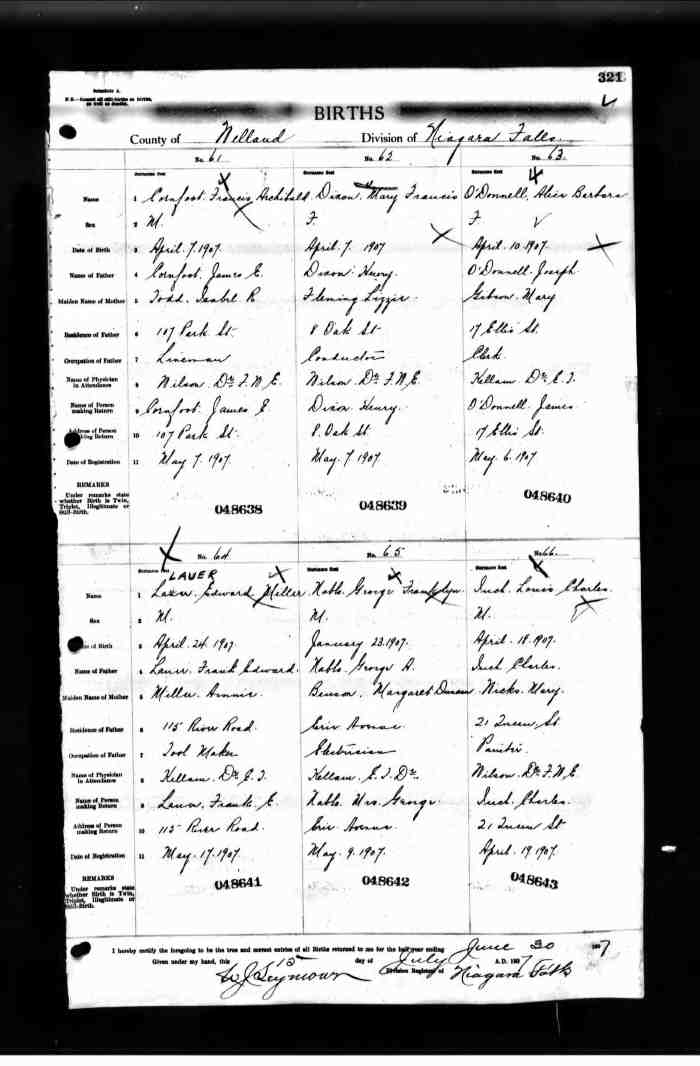 321
SCHEDULE A.
BIRTHS
County of Welland Division of Niagara Falls
No. 61 No. 62 No. 63
Surname first Surname first Surname first
Name 1 Cornfoot, Francis Archibald Dixon, Mary Francis O'Donnell, Alice Barbara
Sex 2 M. F. F
Date of Birth 3 April. 7. 1907 April. 7. 1907 April. 10. 1907
Name of Father 4 Cornfoot, James E. Dixon Henry. O'Donnell Joseph
Maiden Name of Mother 5 Todd. Isabel R Fleming Lizzie Gibson Mary
Residence of Father 6 107 Park St. 8 Oak St 17 Ellis St.
Occupation of Father 7 Lineman Conductor Clerk.
Name of Physician in Attendance 8 Wilson. Dr. F. W. E. Wilson. Dr. F. W. E. Kellam Dr. E. T.
Name of Person making Return 9 Cornfoot. James E Dixon Henry. O'Donnell. James
Address of Person making Return 10 107 Park St. 8. Oak St. 17 Ellis St.
Date of Registration 11 May 7. 1907. May. 7 1907. May. 6. 1907
REMARKS
Under remarks state whether Birth is Twin, Triplet, Illegitimate or Still-Birth.
048638 048639 048640
No. 64 No. 65 No. 66
Surname first LAUER Surname first Surname first
Name 1 Lauer, Edward Miller Noble. George Franklyn Such. Louis Charles.
Sex 2 M. M. M.
Date of Birth 3 April. 24. 1907. January 23. 1907. April. 18. 1907.
Name of Father 4 Lauer, Frank Edward. Noble. George A. Such Charles.
Maiden Name of Mother 5 Miller Annie. Benson, Margaret Duncan Nicks. Mary.
Residence of Father 6 115 River Road. Erie Avenue 21 Queen St
Occupation of Father 7 Tool Maker Electrician Painter.
Name of Physician in Attendance 8 Kellam. Dr. E. T. Kellam. E. T. Dr. Wilson. Dr. F. W. E.
Name of Person making Return 9 Lauer. Frank E. Noble. Mrs. George. Such. Charles.
Address of Person making Return 10 115 River Road. Erie Avenue. 21 Queen St
Date of Registration 11 May. 17. 1907. May. 9. 1907. April. 19 1907.
REMARKS
Under remarks state whether Birth is Twin, Triplet, Illegitimate or Still-Birth.
048641 048642 048643
I hereby certify the foregoing to be the true and correct entries of all Births returned to me for the half-year ending June 30 1907
Given under my hand, this 15 day of July A.D. 1907
W J Seymour Division Registrar of Niagara Falls